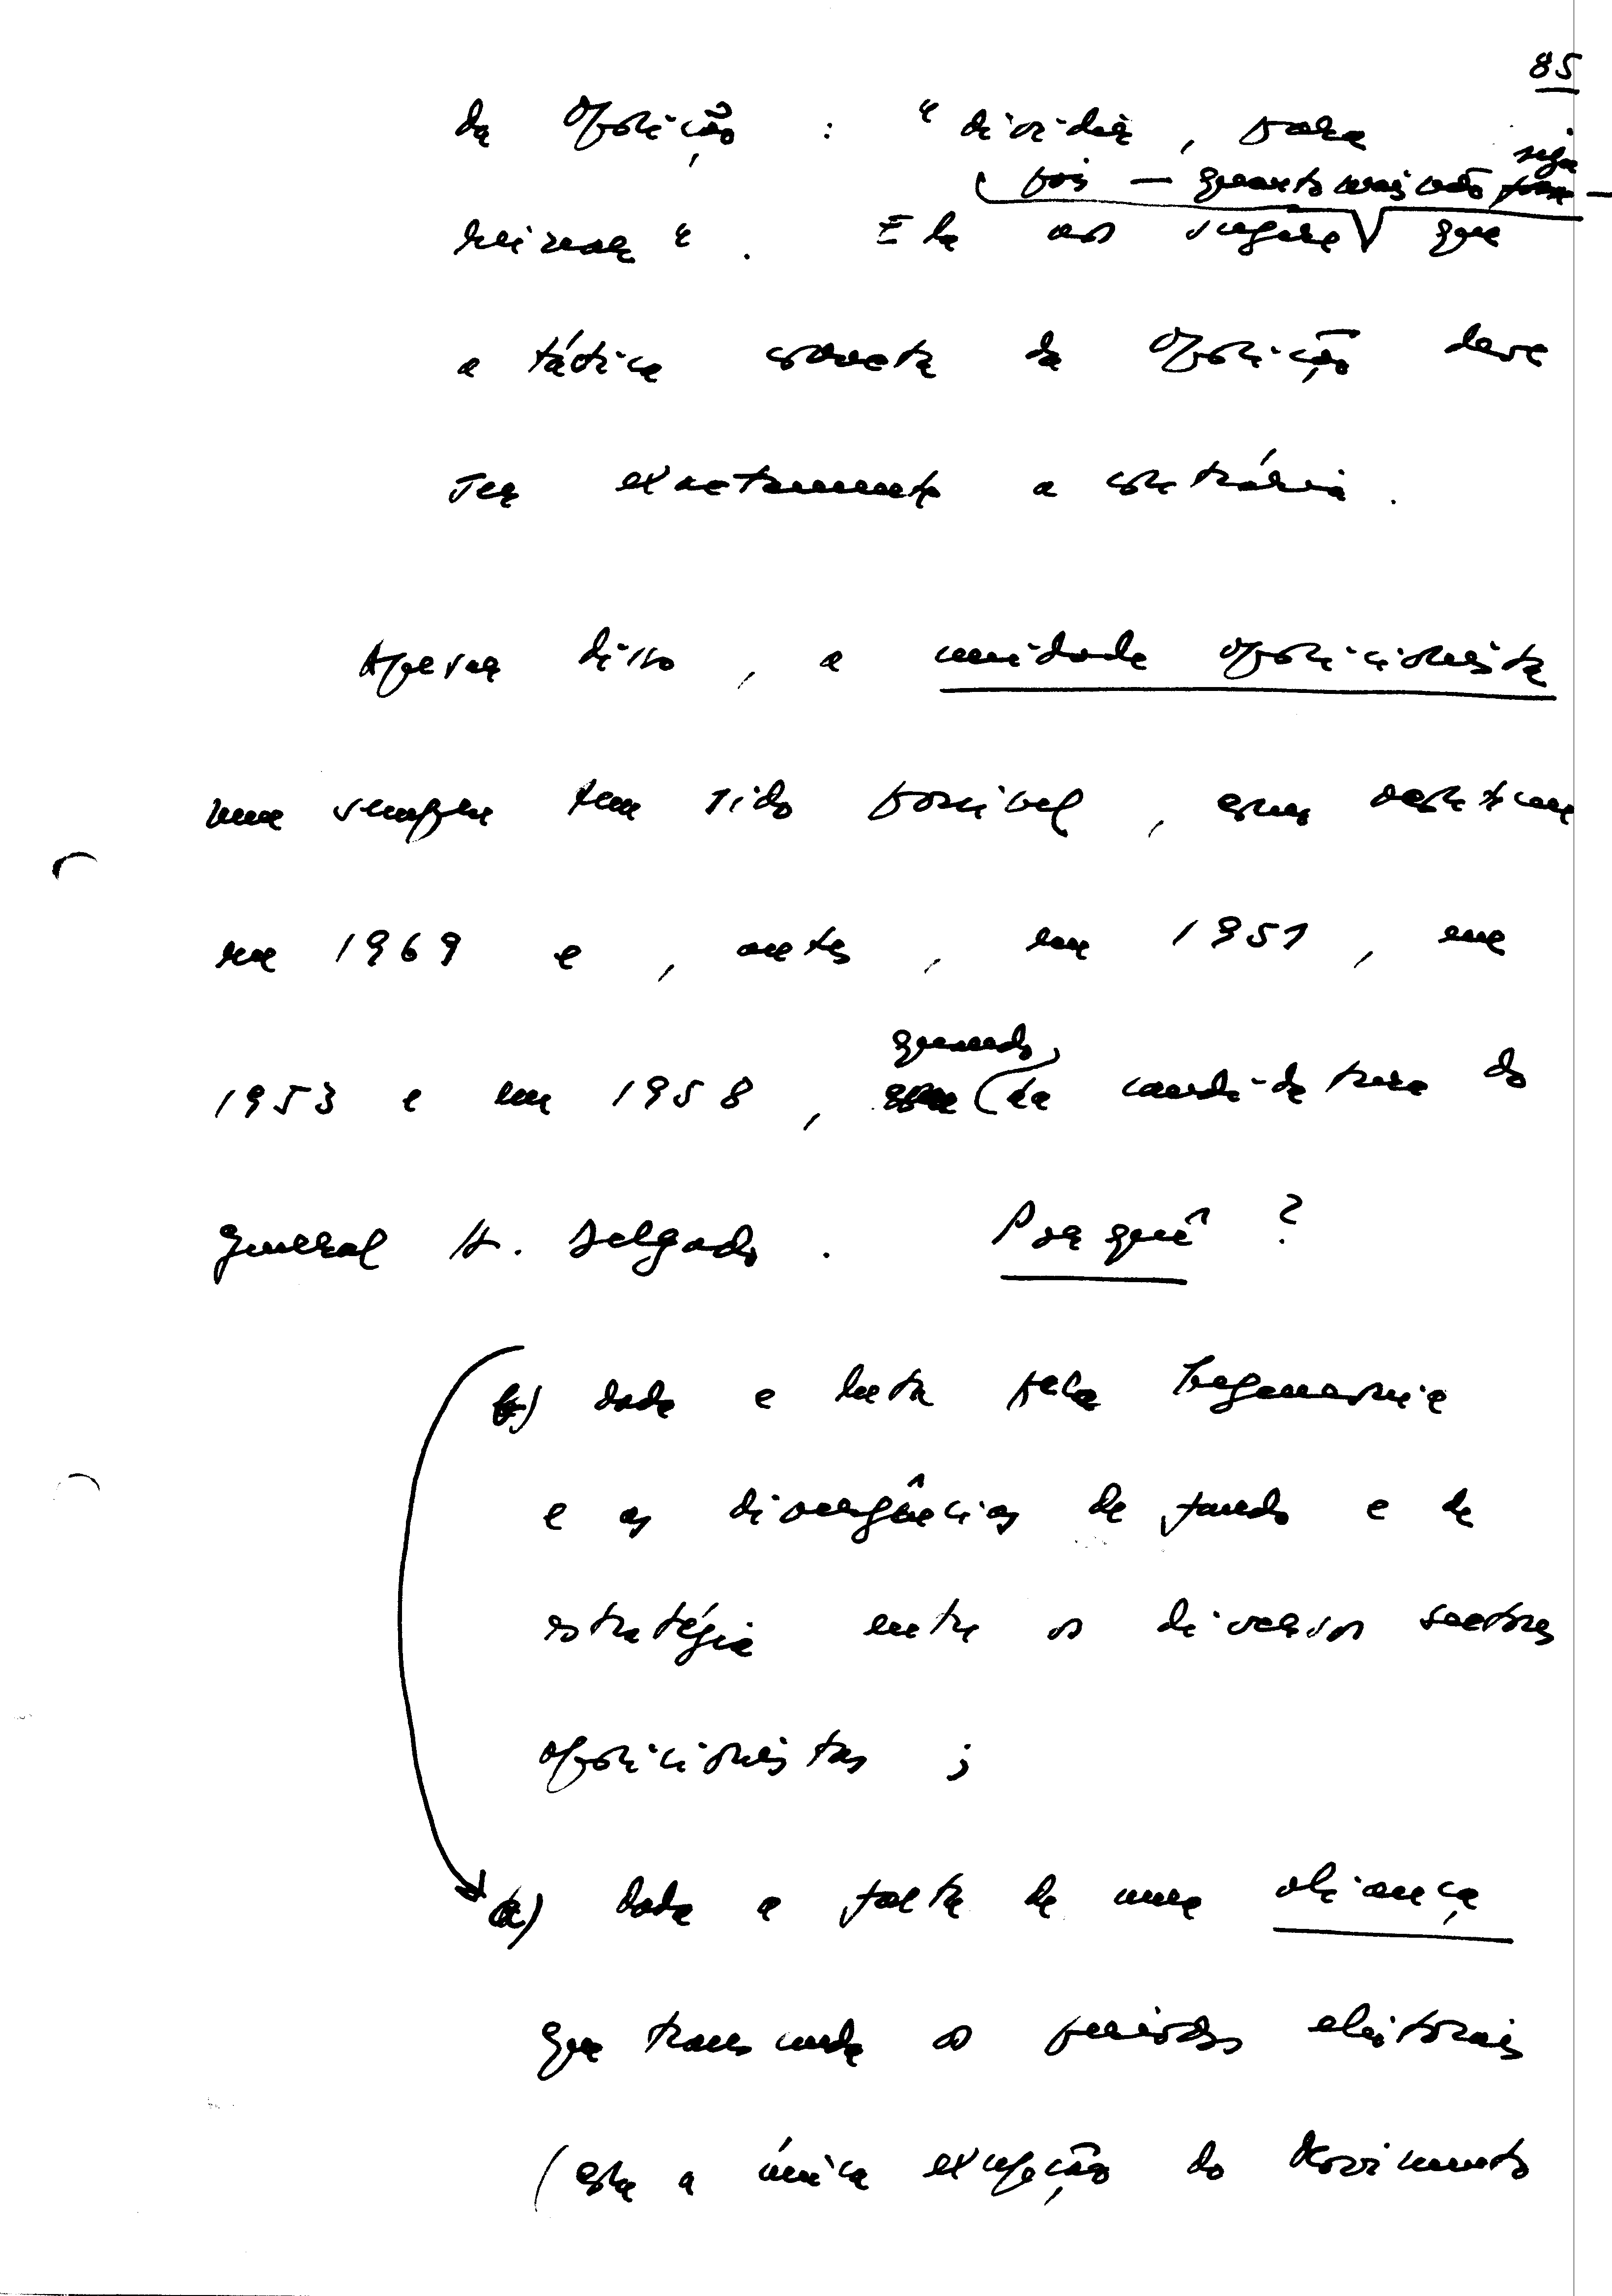 85
da Oposição : "dividir, para
pois — quanto mais não seja —
reinar". Ela nos sugere que
a táctica correcta da Oposição deve
ser exactamente a contrária.
Apesar disso, a unidade oposicionista
nem sempre tem sido possível, como
em 1969 e, antes, em 1951, em
quando
1953 e em 1958, da candidatura do
General H. Delgado. Porquê?
b) dada a luta pela hegemonia
e as divergências de fundo e de
estratégia entre os diversos sectores
oposicionistas;
a) dada a falta de uma aliança
que transcenda os períodos eleitorais
(com a única excepção do Movimento